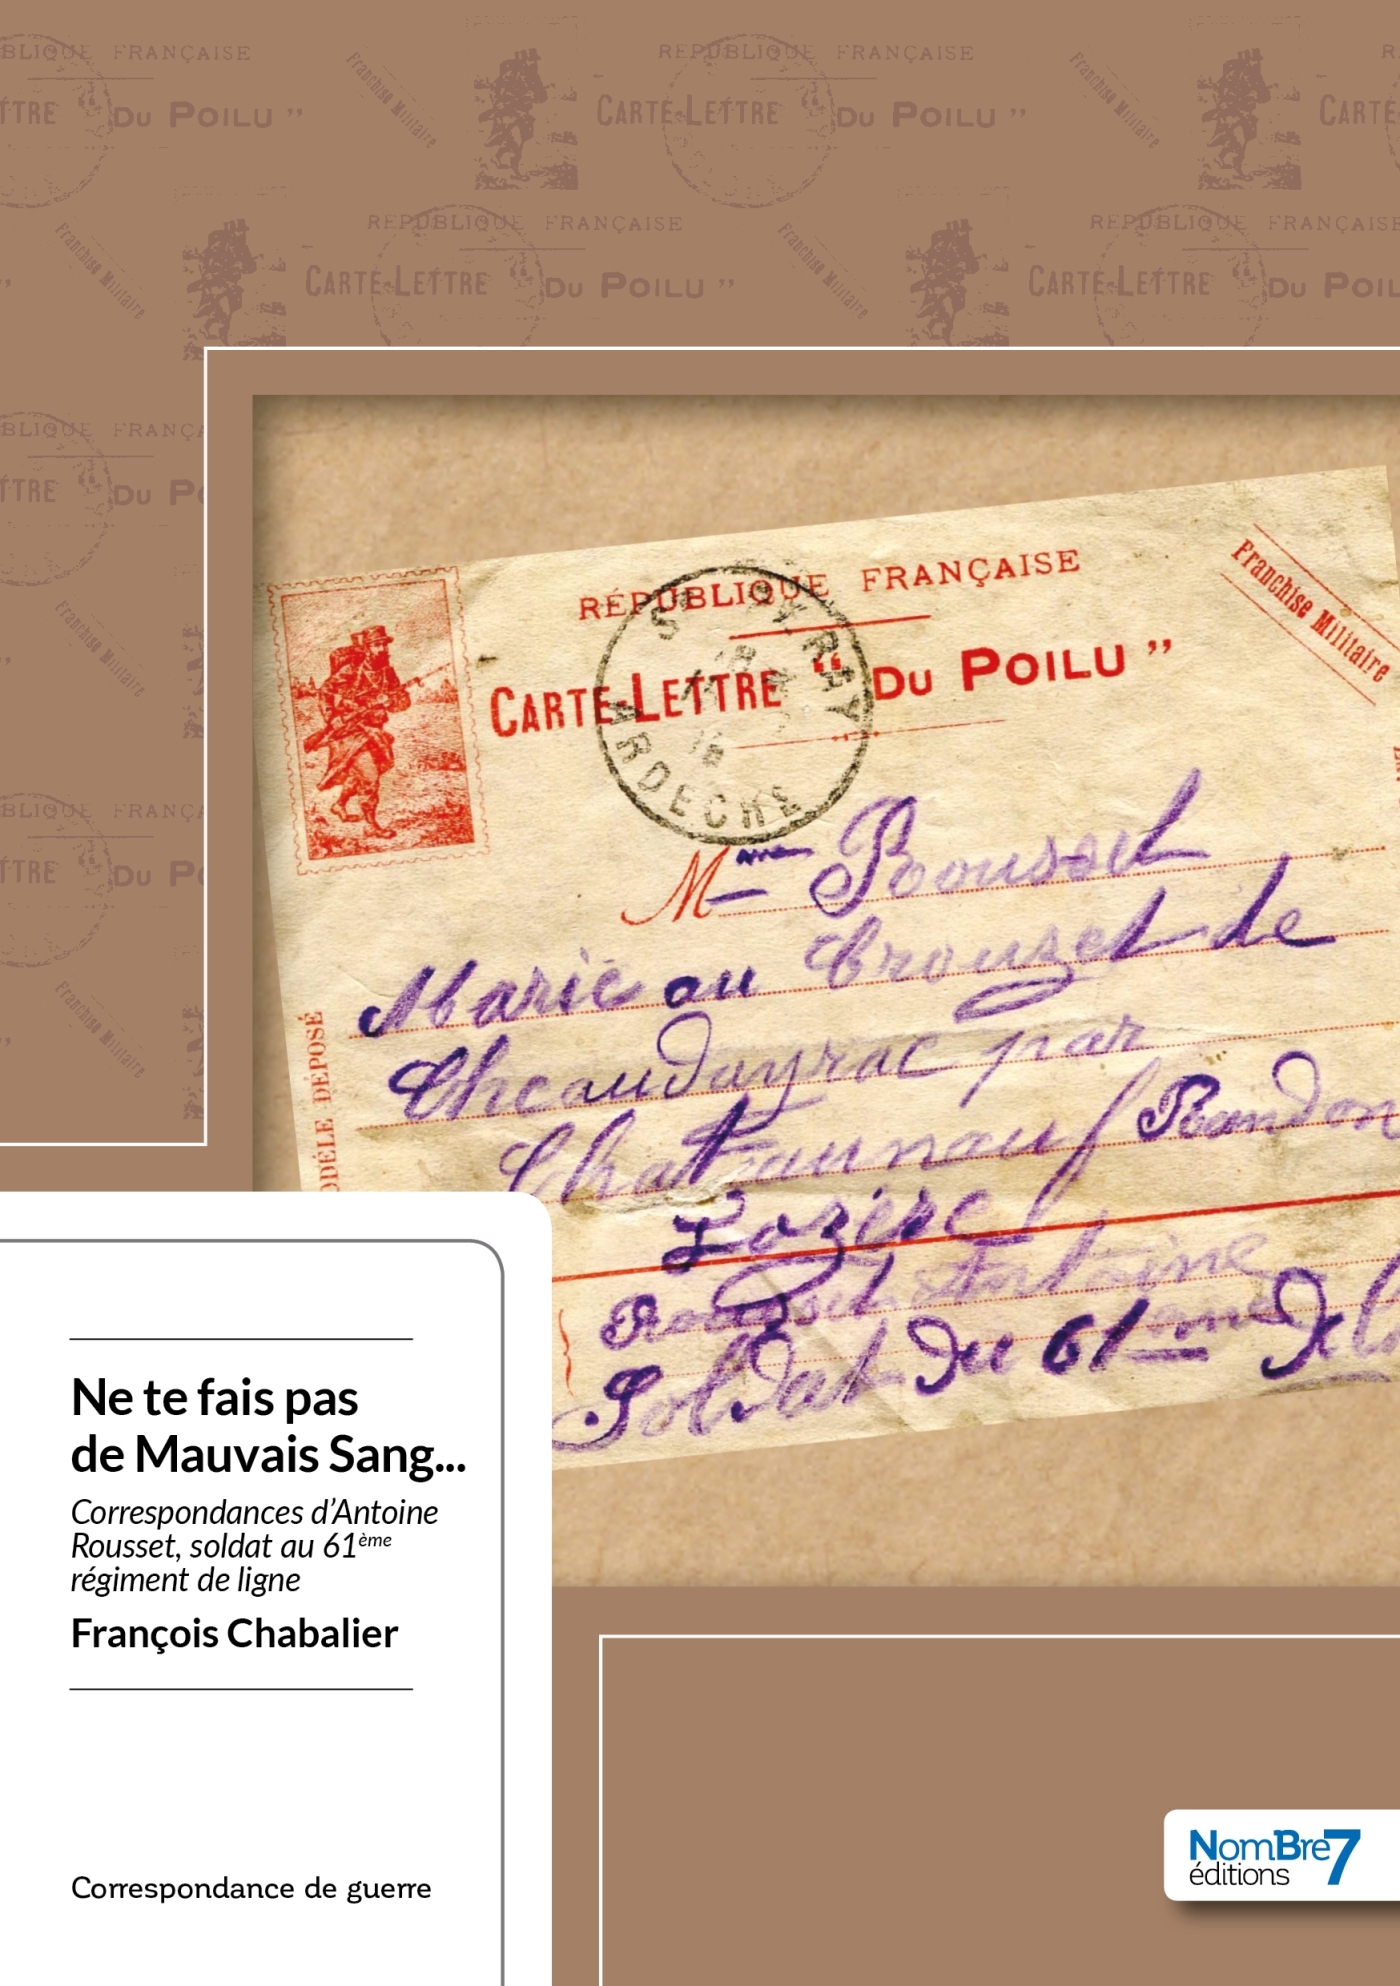 RÉPUBLIQUE FRANÇAISE
Franchise Militaire
CARTE-LETTRE “ DU POILU ”
ARDECHE
MODÈLE DÉPOSÉ
Mme Rousset
Marie au Crouzet de
Cheaudayrac par
Chateauneuf Randon
Lozère
Rousset Antoine
Soldat du 61me De
Ne te fais pas
de Mauvais Sang...
Correspondances d’Antoine
Rousset, soldat au 61ème
régiment de ligne
François Chabalier
Correspondance de guerre
NomBre7
éditions